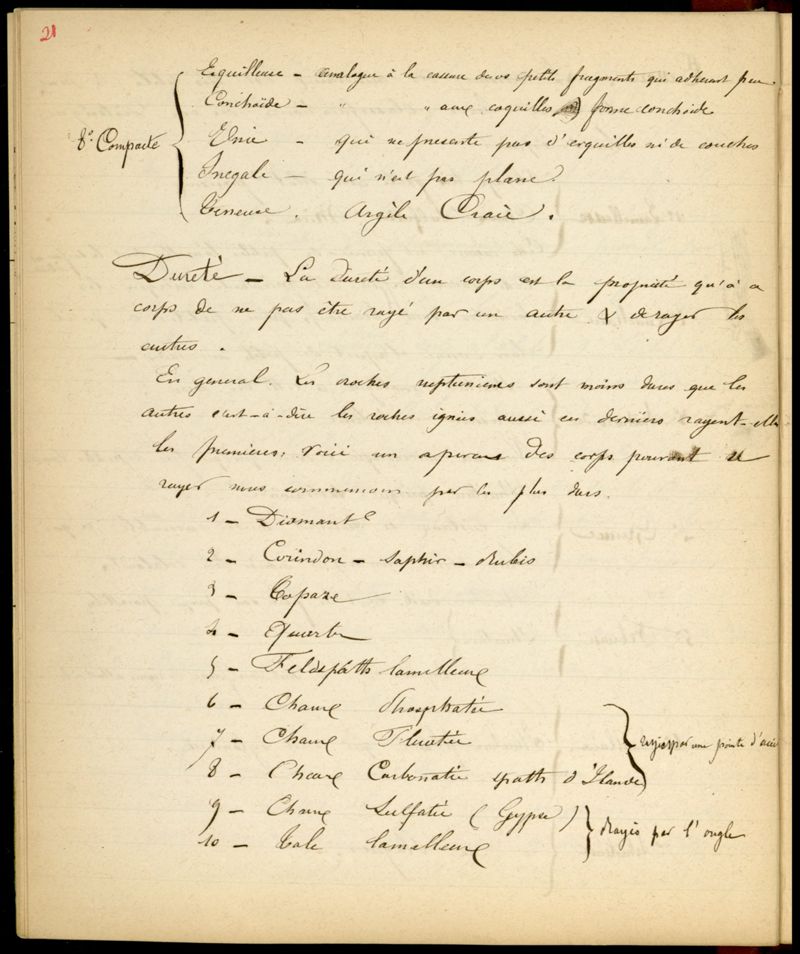 21
Esquilleuse - analogue à la cassure de os petits fragments qui adherent peu
Conchoïde - " " aux coquilles forme conchoïde
8° Compacte
Unie - qui ne presente pas d'esquilles ni de couches
Inegale - qui n'est pas plane.
Terreuse. Argile Craie.
Dureté - La dureté d'un corps est la propriété qu'à a
corps de ne pas être rayé par un autre & de rayer les
autres.
En general. Les roches neptuniennes sont moins dures que les
autres c'est-à-dire les roches ignées aussi ces derniers rayent-elles
les premieres; voici un apercu des corps pouvant se
rayer nous commencons par les plus durs.
1 - Diamant
2 - Corindon - saphir - Rubis
3 - Topaze
4 - Quartz
5 - Feldspath lamelleux
6 - Chaux Phosphatée
7 - Chaux Fluatée
rayées par une pointe d'acier
8 - Chaux Carbonatée spath d'Islande)
9 - Chaux Sulfatée (Gypse)
rayés par l'ongle
10 - Talc lamelleux